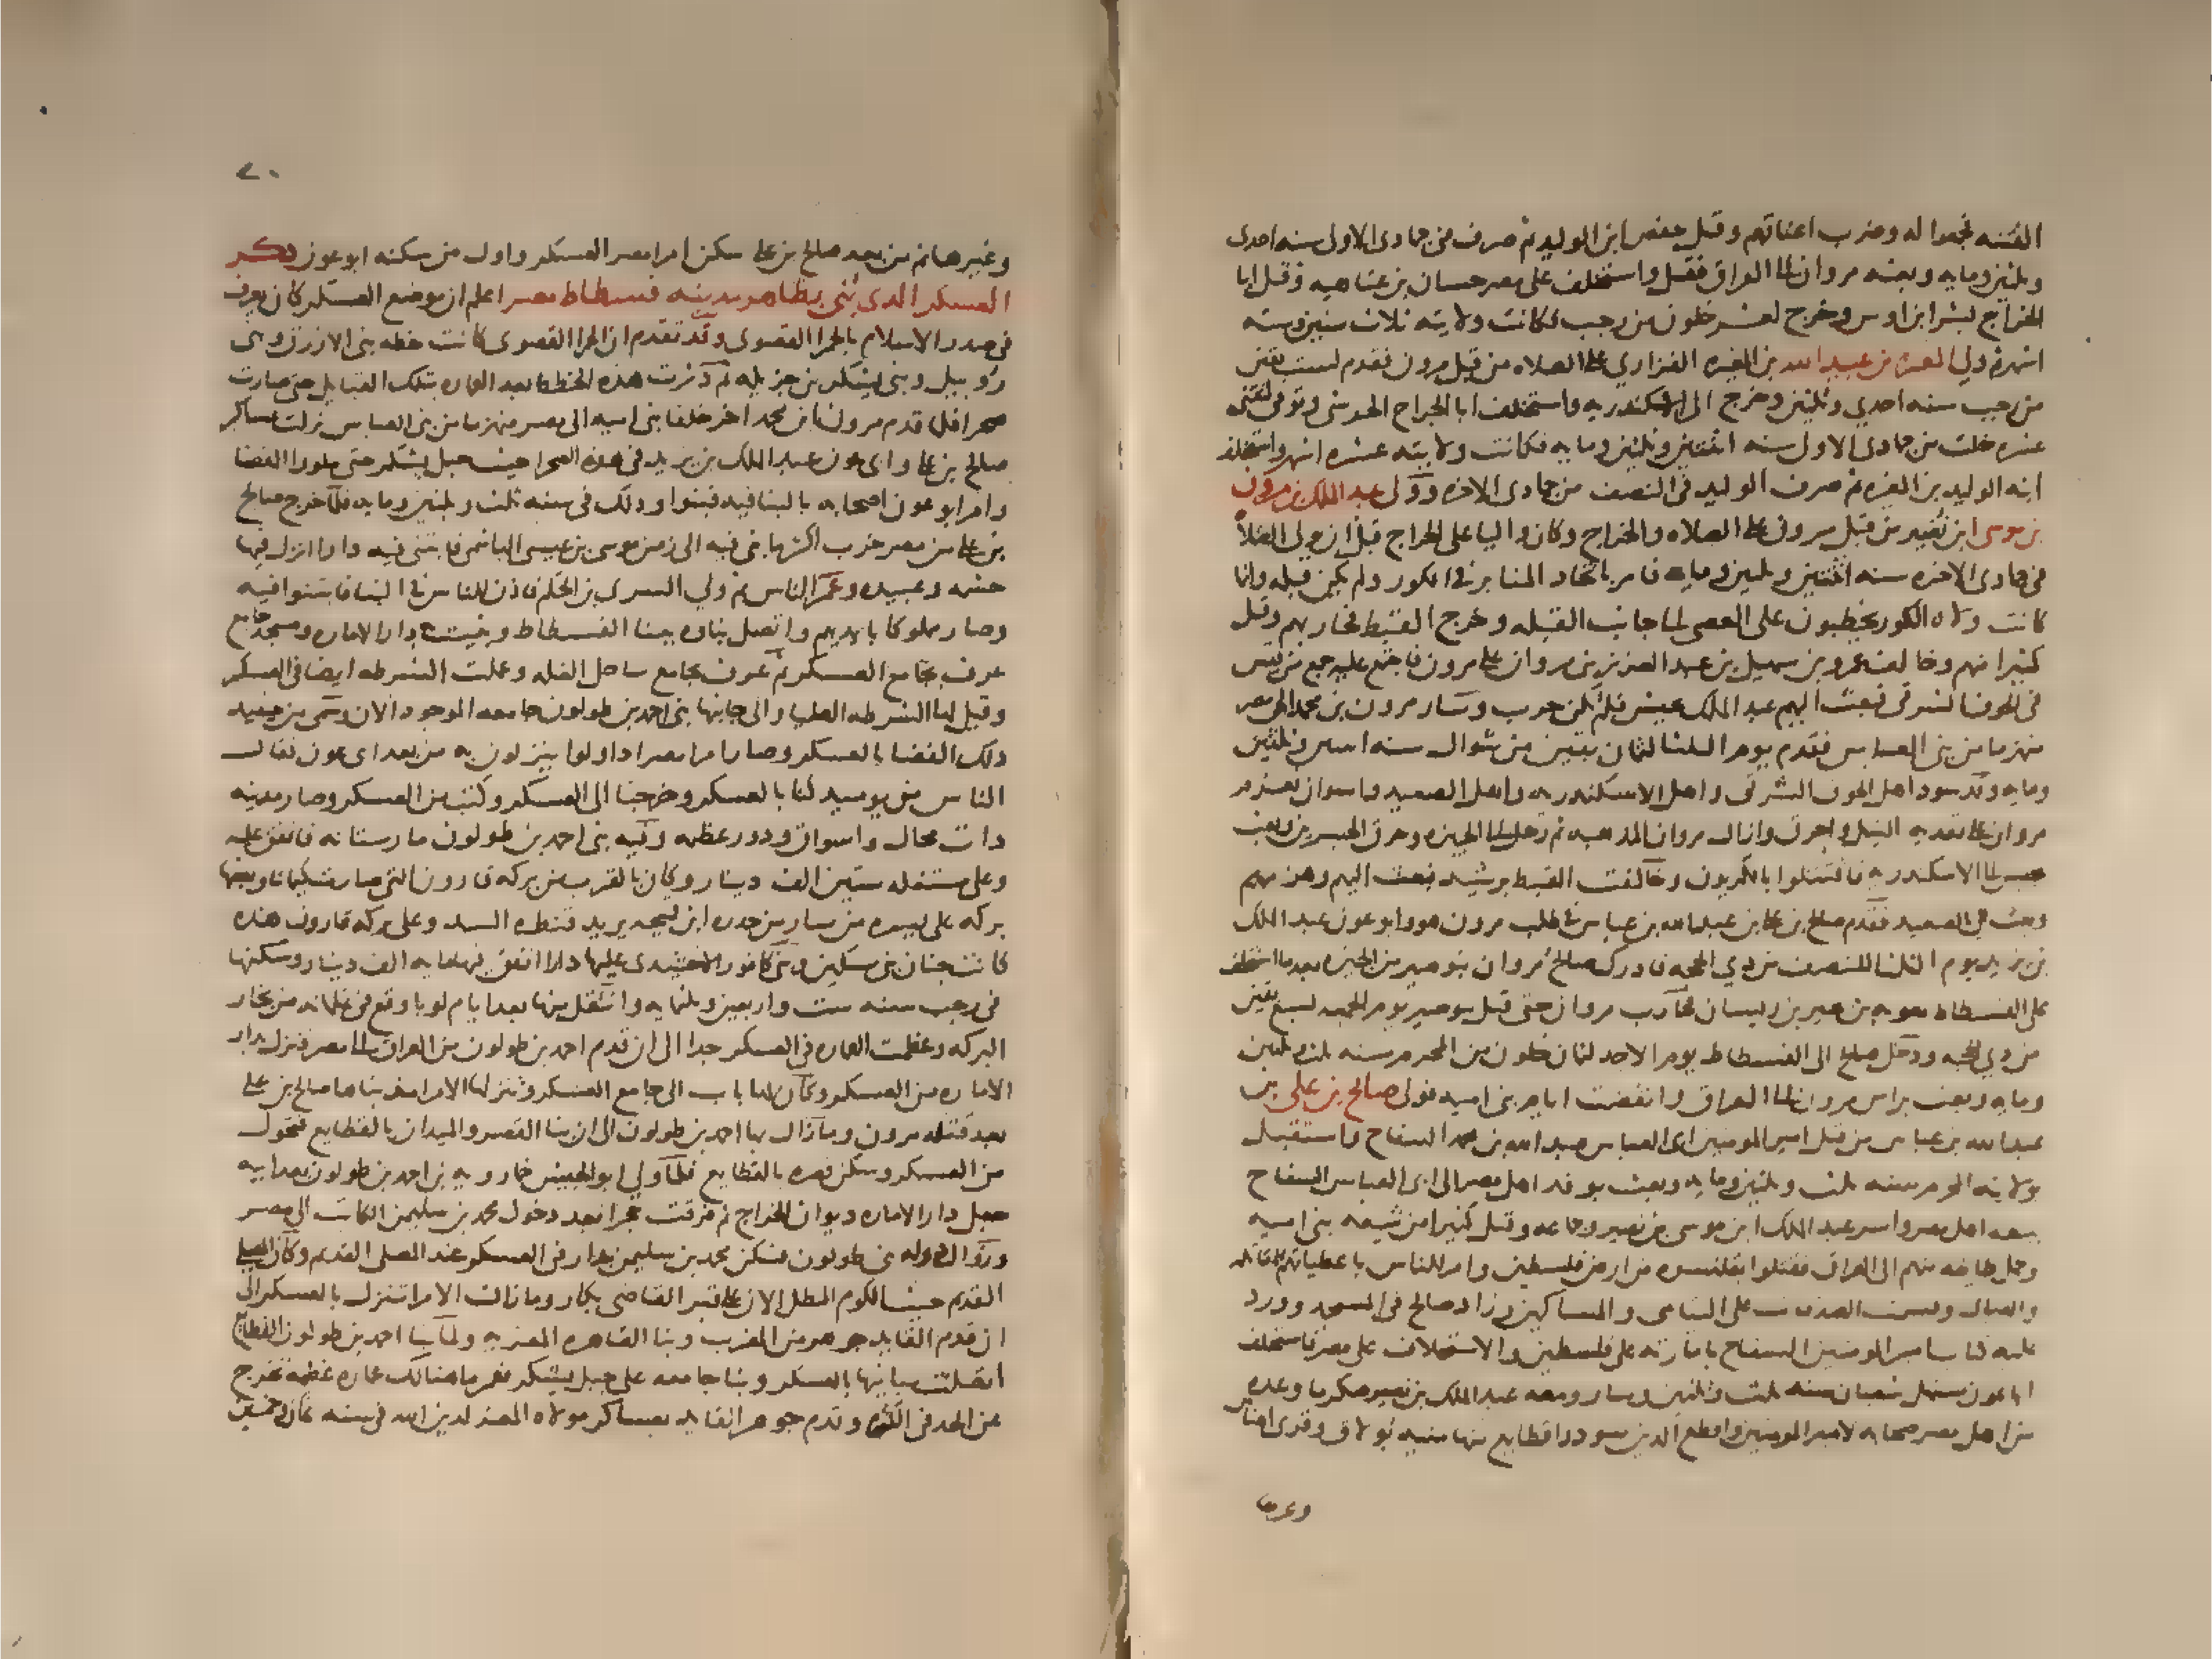 الفتنه فجمعوا له وضرب اعناقهم وقتل حفص ابن الوليد ثم صرف من جمادى الاولى سنه احدى
وثلثين ومايه وبعثه مروان الى العراق فقتل واستخلف على مصر حسان بن عتاهيه وقتل ابا
الخراج بشر ابن اوس وخرج لعشر خلون من رجب فكانت ولايته ثلاث سنين وسته
اشهر ثم ولي المغيره بن عبيد الله بن المغيره الفزاري على الصلاه من قبل مرون فقدم لست بقين
من رجب سنه احدي وثلثين وخرج الى الاسكندريه واستخلف ابا الجراح الحرسى وتوفى لثنتى
عشره خلت من جمادى الاول سنه اثنتين وثلثين ومايه فكانت ولايته عشره اشهر واستخلف
ابنه الوليد بن المغيره ثم صرف الوليد فى النصف من جمادى الاخره وولى عبد الملك بن مرون
بن موسى ابن نصير من قبل مرون على الصلاه والخراج وكان واليا على الخراج قبل ان يولى الصلاه
فى جمادى الاخره سنه اثنتين وثلثين ومايه فامر باتخاد المنابر فى الكور ولم يكن قبله وانما
كانت ولاه الكور يخطبون على العصى الى جانب القبله وخرج القبط فحاربهم وقتل
كثيرا منهم وخالف عمرو بن سهيل بن عبد العزيز بن مروان على مرون فاجتمع عليه جمع من قيس
فى الحوف الشرقى فبعث اليهم عبد الملك بجيش فلم يكن حرب وسار مرون بن محمد الى مصر
منهزما من بنى العباس فقدم يوم الثلثا لثمان بقين من شوال سنه اثنين وثلثين
ومايه وقد سود اهل الحوف الشرقى واهل الاسكندريه واهل الصعيد واسوان فعزم
مروان على تعديه النيل واحرق دار ال مروان المذهبه ثم رحل الى الجيزه وحرق الجسرين وبعث
بجيش الى الاسكندريه فاقتتلوا بالكريون وخالفت القبط برشيد فبعث اليهم وهزمهم
وبعث الى الصعيد فقدم صالح بن على بن عبد الله بن عباس فى طلب مرون هو وابو عون عبد الملك
بن يزيد يوم الثلثا للنصف من ذي الحجه فادرك صالح مروان ببوصير من الجيزه بعد ما استخلف
على الفسطاط معويه بن بحير بن ريسان فحارب مروان حتى قتل ببوصير يوم الجمعه لسبع بقين
من ذي الحجه ودخل صالح الى الفسطاط يوم الاحد لثمان خلون من المحرم سنه ثلث وثلثين
ومايه وبعث براس مرون الى العراق وانقضت ايام بنى اميه فولى صالح بن على بن
عبد الله بن عباس من قبل امير المومنين ابى العباس عبد الله بن محمد السفاح واستقبل
بولايته المحرم سنه ثلث وثلثين ومايه وبعث بوفد اهل مصر الى ابى العباس السفاح
ببيعه اهل مصر واسر عبد الملك ابن موسى بن نصير وجماعه وقتل كثيرا من شيعه بنى اميه
وحمل طايفه منهم الى العراق فقتلوا بقلنسوه من ارض فلسطين وامر للناس باعطياتهم للمقاتله
والعيال وقسمت الصدقات على اليتامى والمساكين وزاد صالح فى المسجد وورد
عليه كتاب امير المومنين السفاح بامارته على فلسطين والاستخلاف على مصر فاستخلف
ابا عون مستهل شعبان سنه ثلث وثلثين وسار ومعه عبد الملك بن نصير مكرما وعده
من اهل مصر صحابه لامير المومنين واقطع الذين سودوا قطايع منها منيه بولاق وقرى اهناس
وغيرها
٢٠
وغيرها ثم من بعد صالح بن على سكن امرا مصر العسكر واول من سكنه ابو عون ذكر
العسكر الدى بنى بظاهر مدينه فسطاط مصر اعلم ان موضع العسكر كان يعرف
فى صدر الاسلام بالحمرا القصوى وقد تقدم ان الحمرا القصوى كانت خطه بنى الازرق وبنى
روبيل وبنى يشكر بن جزيله ثم دثرت هذه الخطط بعد العماره بتلك القبايل حتى صارت
صحرا فلما قدم مرون بن محمد اخر خلفا بنى اميه الى مصر منهزما من بنى العباس نزلت عساكر
صالح بن على وابى عون عبد الملك بن يزيد فى هذه الصحرا حيث جبل يشكر حتى ملوا الفضا
وامر ابو عون اصحابه بالبنا فيه فبنوا ودلك فى سنه ثلث وثلثين ومايه فلما خرج صالح
بن على من مصر خرب اكثر ما بنى فيه الى زمن موسى بن عيسى الهاشمى فابتنى فيه دارا انزل فيها
حشمه وعبيده وعمر الناس ثم ولي السرى بن الحكم فاذن للناس فى البنا فابتنوا فيه
وصار مملوكا بايديهم واتصل بناوه ببنا الفسطاط وبنيت فيه دار الاماره ومسجد جامع
عرف بجامع العسكر ثم عرف بجامع ساحل الغله وعملت الشرطه ايضا فى العسكر
وقيل لها الشرطه العليا والى جانبها بنى احمد بن طولون جامعه الموجود الان وسمى من حينيد
دلك الفضا بالعسكر وصار امرا مصر ادا ولوا ينزلون به من بعد ابى عون فقال
الناس من يوميد كنا بالعسكر وخرجنا الى العسكر وكتب من العسكر وصار مدينه
دات محال واسواق ودور عظيمه وفيه بنى احمد بن طولون مارستانه فانفق عليه
وعلى مستغله ستين الف دينار وكان بالقرب من بركه قارون التى صارت كيمانا وبعضها
بركه على يسره من سار من حدره ابن قميحه يريد قنطره السد وعلى بركه قارون هذه
كانت جنان بنى مسكين وبنى كافور الاخشيدى عليها دارا انفق فيها مايه الف دينار وسكنها
فى رجب سنه ست واربعين وثلثمايه وانتقل منها بعد ايام لوبا وقع فى غلمانه من بخار
البركه وعظمت العماره فى العسكر جدا الى ان قدم احمد بن طولون من العراق الى مصر فنزل بدار
الاماره من العسكر وكان لها باب الى جامع العسكر وتنزلها الامرا منذ بناها صالح بن على
بعد قتله مرون وما زال بها احمد بن طولون الى ان بنا القصر والميدان بالقطايع فتحول
من العسكر وسكن قصره بالقطايع فلما ولي ابو الجيش خمارويه بن احمد بن طولون بعد ابيه
جعل دار الاماره ديوان الخراج ثم فرقت حجرا بعد دخول محمد بن سليمن الكاتب الى مصر
وزوال دوله بنى طولون فسكن محمد بن سليمن بدار فى العسكر عند المصلى القديم وكان المصلى
القديم حيث الكوم المطل الان على قبر القاضى بكار وما زالت الامرا تنزل بالعسكر الى
ان قدم القايد جوهر من المغرب وبنا القاهره المعزيه ولما بنا احمد بن طولون القطايع
اتصلت مبانيها بالعسكر وبنا جامعه على جبل يشكر فعمر ما هنالك عماره عظيمه تخرج
عن الحد فى الكثره وقدم جوهر القايد بعساكر مولاه المعز لدين الله فى سنه ثمان وخمسين